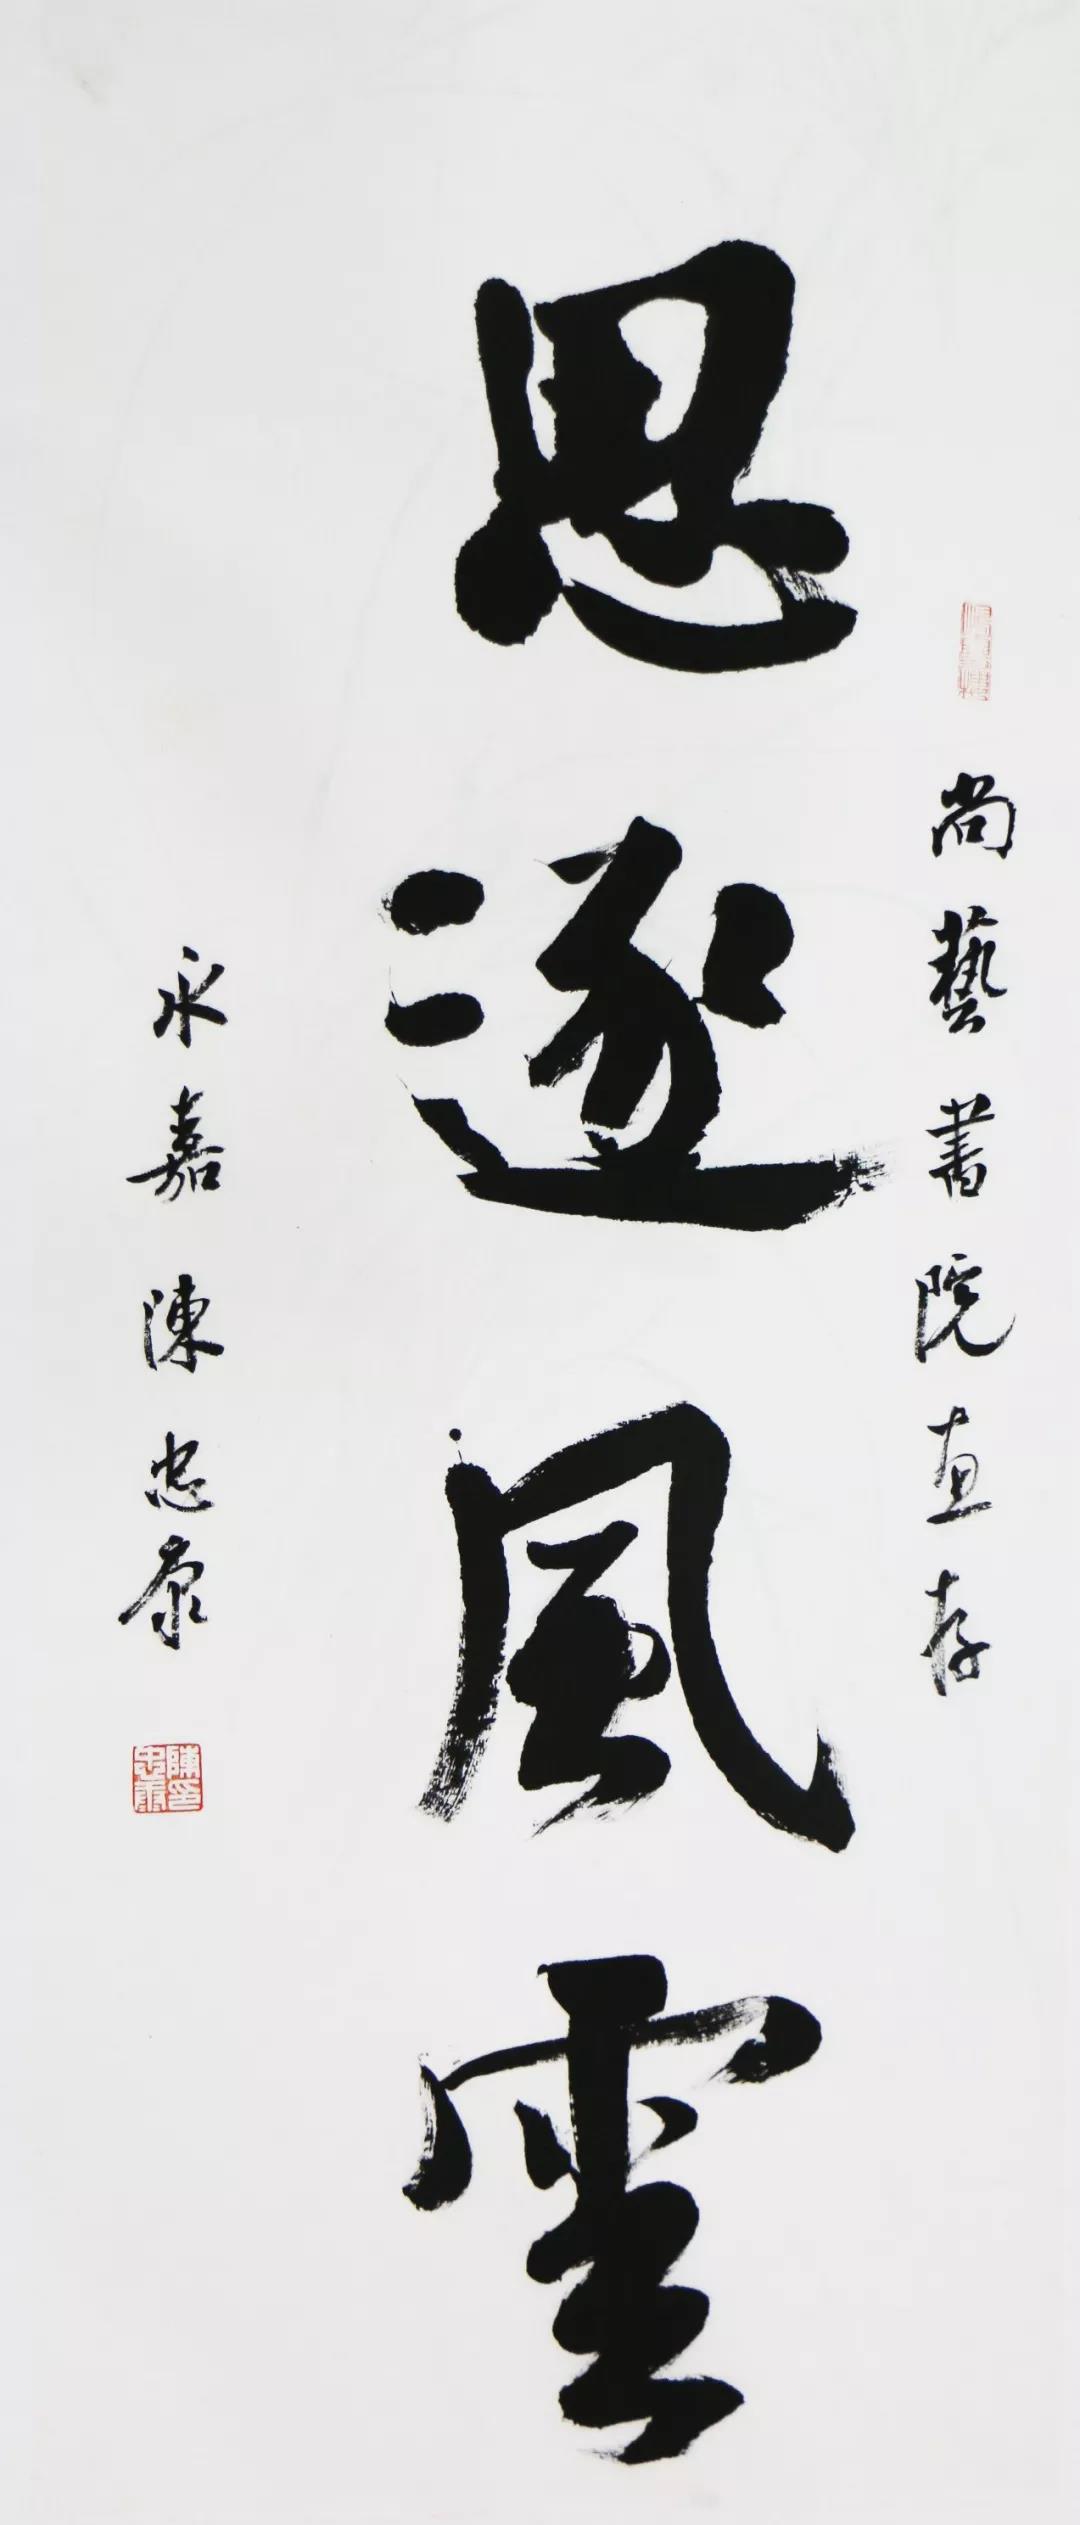 尚藝書院惠存
思逐風雲
永嘉陳忠康
陳印
忠康